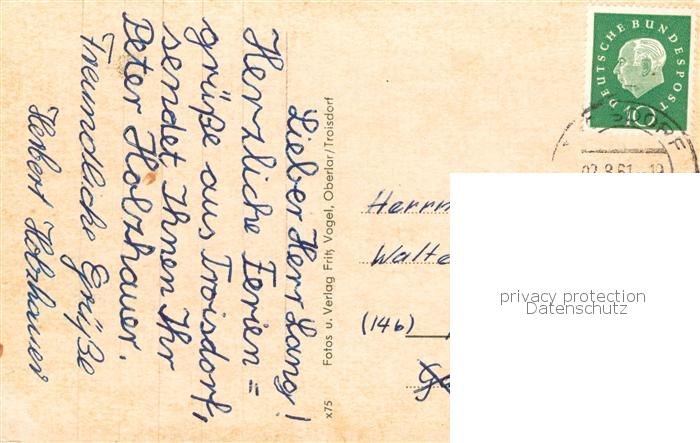 Lieber Herr Lang!
Herzliche Ferien=
grüße aus Troisdorf,
sendet Ihnen Ihr
Peter Holzhauer.
Freundliche Grüße
Herbert Holzhauer
x75 Fotos u. Verlag Fritz Vogel, Oberlar/Troisdorf
DEUTSCHE BUNDESPOST
10
SDORF
02.8.61-19
Herrn
Walte
(14b)
privacy protection
Datenschutz